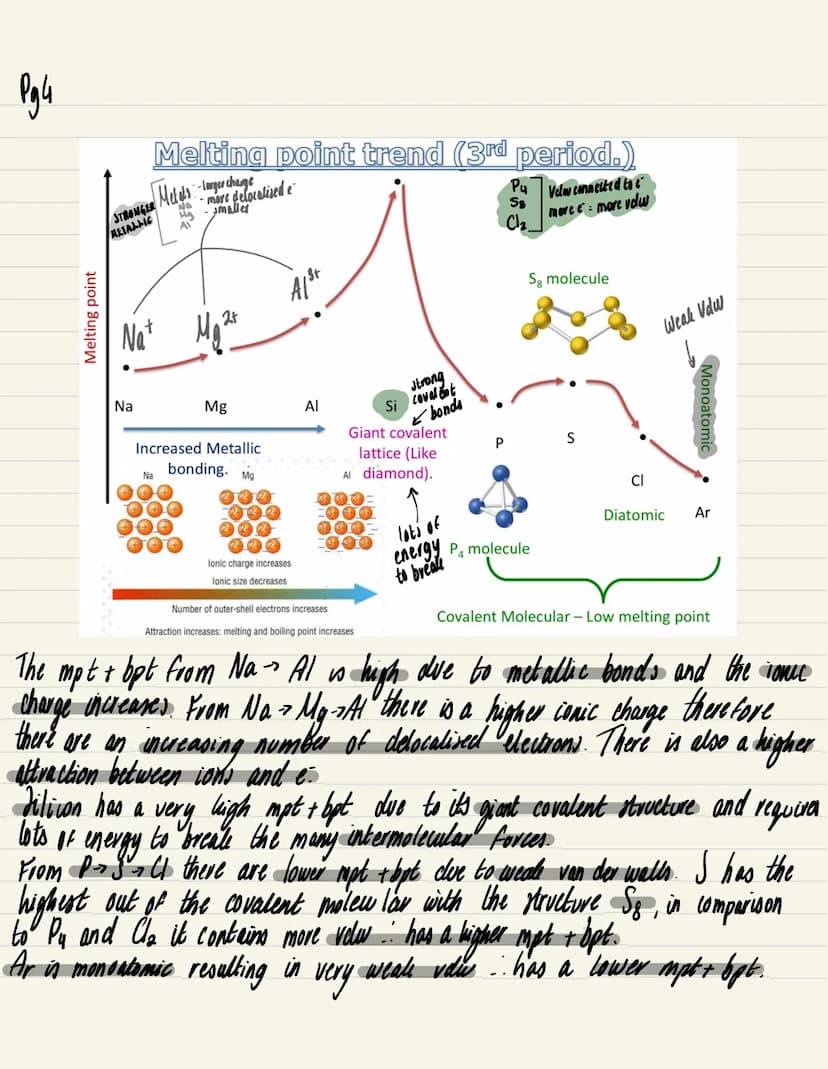 Pg4
Melting point trend (3rd period.)
STRONGER
METALLIC
Metals
Na
Mg
Al
- larger charge
- more delocalised e⁻
- smaller
P4
S8
Cl2
Vdw connected to e⁻
more e⁻ = more vdw
Melting point
Na⁺
Mg²⁺
Al³⁺
S8 molecule
Weak Vdw
Monoatomic
Na Mg Al
Si
strong
covalent
bonds
Giant covalent
lattice (Like
diamond).
lots of
energy
to break
Increased Metallic
bonding.
Na Mg Al
P
S
Cl
Ar
Diatomic
P4 molecule
Ionic charge increases
Ionic size decreases
Number of outer-shell electrons increases
Attraction increases: melting and boiling point increases
Covalent Molecular – Low melting point
The mpt + bpt from Na → Al is high due to metallic bonds and the ionic
charge increases. From Na → Mg → Al there is a higher ionic charge therefore
there are an increasing number of delocalised electrons. There is also a higher
attraction between ions and e⁻
Silicon has a very high mpt + bpt due to its giant covalent structure and requires
lots of energy to break the many intermolecular forces.
From P → S → Cl there are lower mpt + bpt due to weak van der walls. S has the
highest out of the covalent molecular with the structure S8, in comparison
to P4 and Cl2 it contains more vdw ∴ has a higher mpt + bpt.
Ar is monoatomic resulting in very weak vdw ∴ has a lower mpt + bpt.